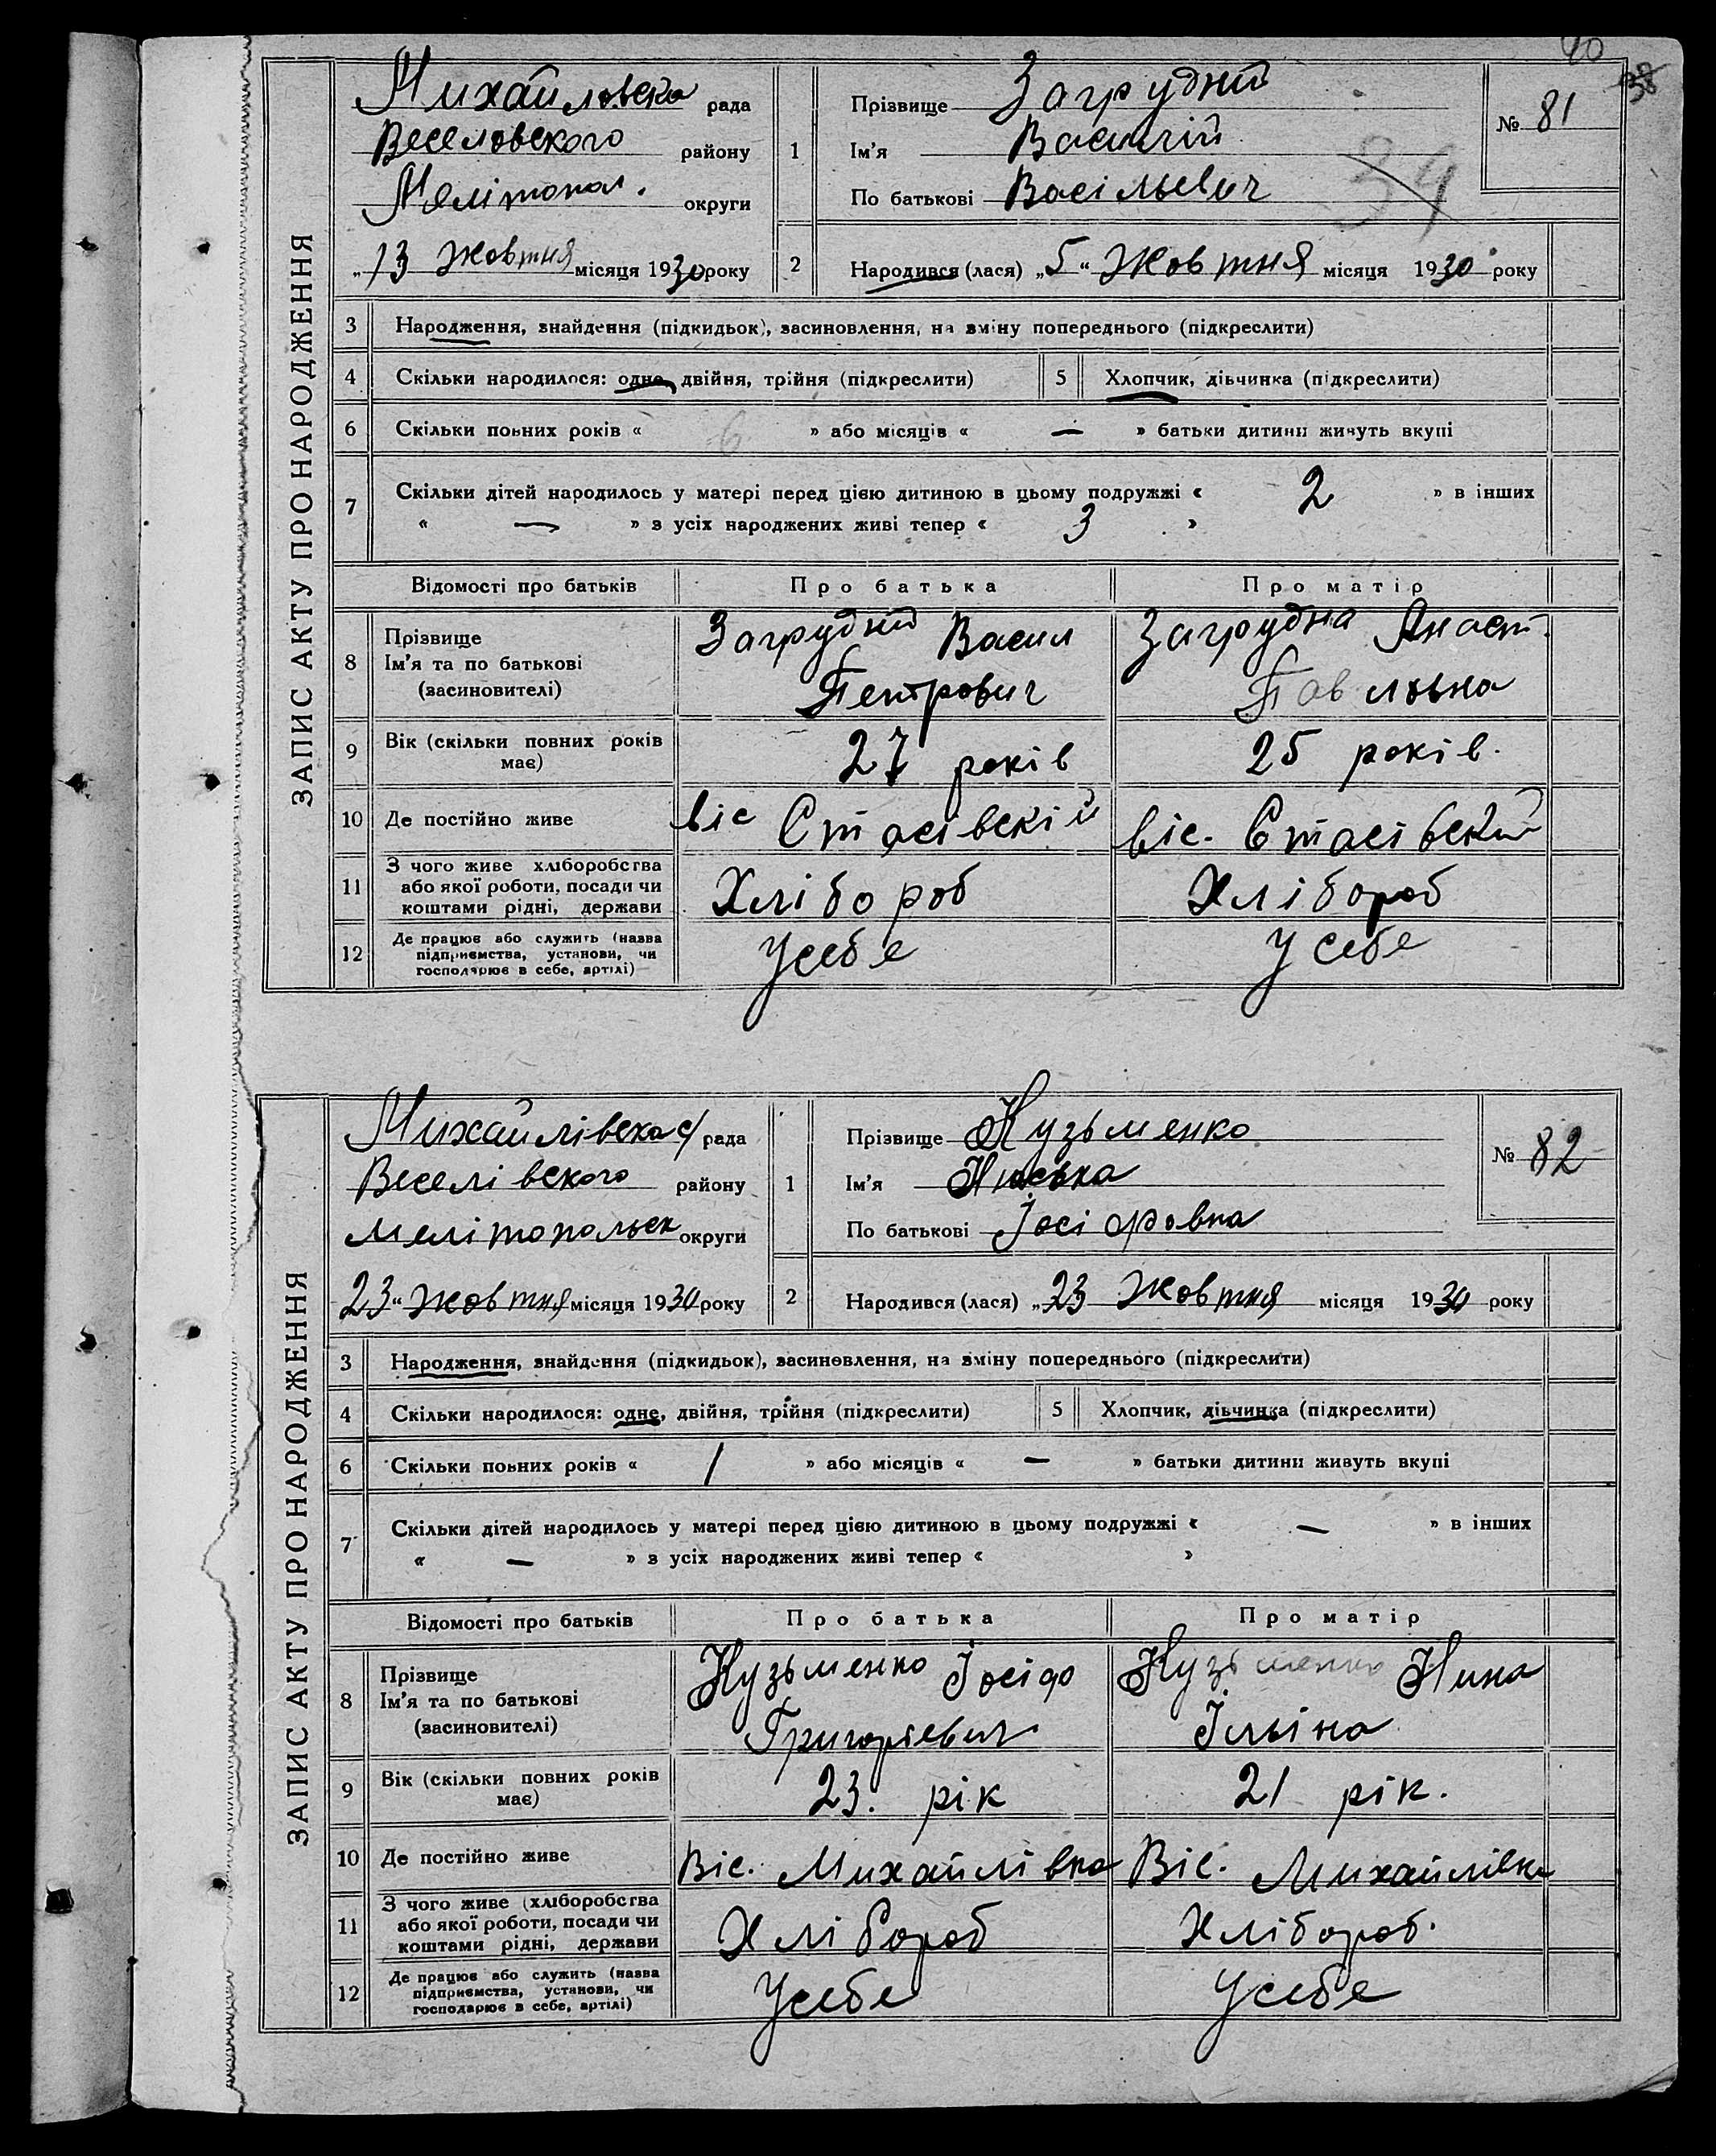 40
38
ЗАПИС АКТУ ПРО НАРОДЖЕННЯ
Михайловска рада
Веселовского району
Мелітопол. округи
„13 Жовтня місяця 1930 року
1
Прізвище Загрудний
Ім'я Василий
По батькові Васільевич
№ 81
34
2 Народився (лася) „5“ Жовтня місяця 1930 року
3 Народження, знайдення (підкидьок), засиновлення, на зміну попереднього (підкреслити)
4 Скільки народилося: одне, двійня, трійня (підкреслити) 5 Хлопчик, дівчинка (підкреслити)
6 Скільки повних років « 6 » або місяців « — » батьки дитини живуть вкупі
7 Скільки дітей народилось у матері перед цією дитиною в цьому подружжі « 2 » в інших
« — » з усіх народжених живі тепер « 3 »
Відомості про батьків Про батька Про матір
8 Прізвище
Ім'я та по батькові
(засиновителі)
Загрудний Васил
Петрович
Загрудна Анаст.
Павловна
9 Вік (скільки повних років
має)
27 років 25 років.
10 Де постійно живе віс Стасівскій віс. Стасівский
11 З чого живе хліборобства
або якої роботи, посади чи
коштами рідні, держави
Хлібороб Хлібороб
12 Де працює або служить (назва
підприємства, установи, чи
господарює в себе, артілі)
Усебе У себе
ЗАПИС АКТУ ПРО НАРОДЖЕННЯ
Михайлівска с/ рада
Веселівского району
Мелітопольск округи
23“ Жовтня місяця 1930 року
1
Прізвище Кузьменко
Ім'я
По батькові Іосіфовна
№ 82
2 Народився (лася) „23 Жовтня місяця 1930 року
3 Народження, знайдення (підкидьок), засиновлення, на зміну попереднього (підкреслити)
4 Скільки народилося: одне, двійня, трійня (підкреслити) 5 Хлопчик, дівчинка (підкреслити)
6 Скільки повних років « 1 » або місяців « — » батьки дитини живуть вкупі
7 Скільки дітей народилось у матері перед цією дитиною в цьому подружжі « — » в інших
« — » з усіх народжених живі тепер « »
Відомості про батьків Про батька Про матір
8 Прізвище
Ім'я та по батькові
(засиновителі)
Кузьменко Іосіф
Григорієвич
Кузьменко Нина
Ільіна
9 Вік (скільки повних років
має)
23. рік 21 рік.
10 Де постійно живе Віс. Михайлівка Віс. Михайлівка
11 З чого живе (хліборобства
або якої роботи, посади чи
коштами рідні, держави
Хлібороб Хлібороб.
12 Де працює або служить (назва
підприємства, установи, чи
господарює в себе, артілі)
Усебе Усебе